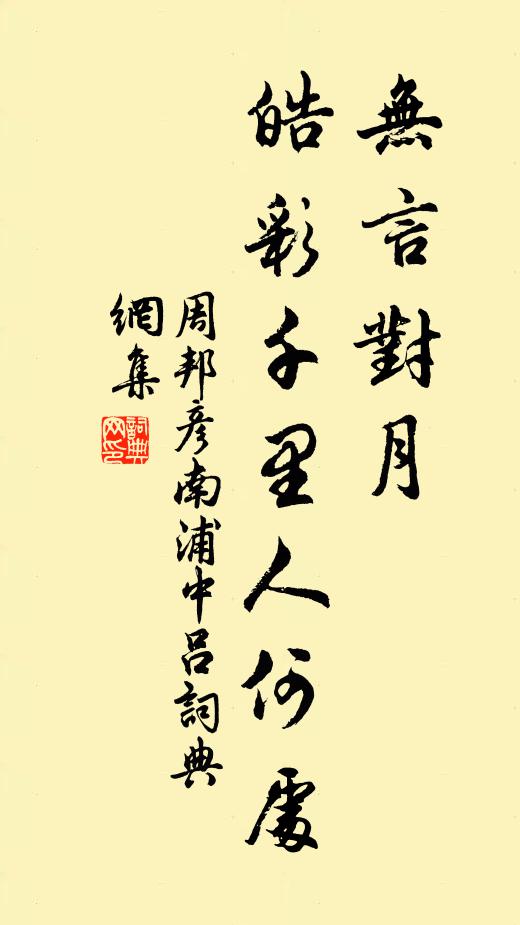 無言對月
皓彩千里人何處
周邦彥南浦中呂詞典
網集
詞典
网印